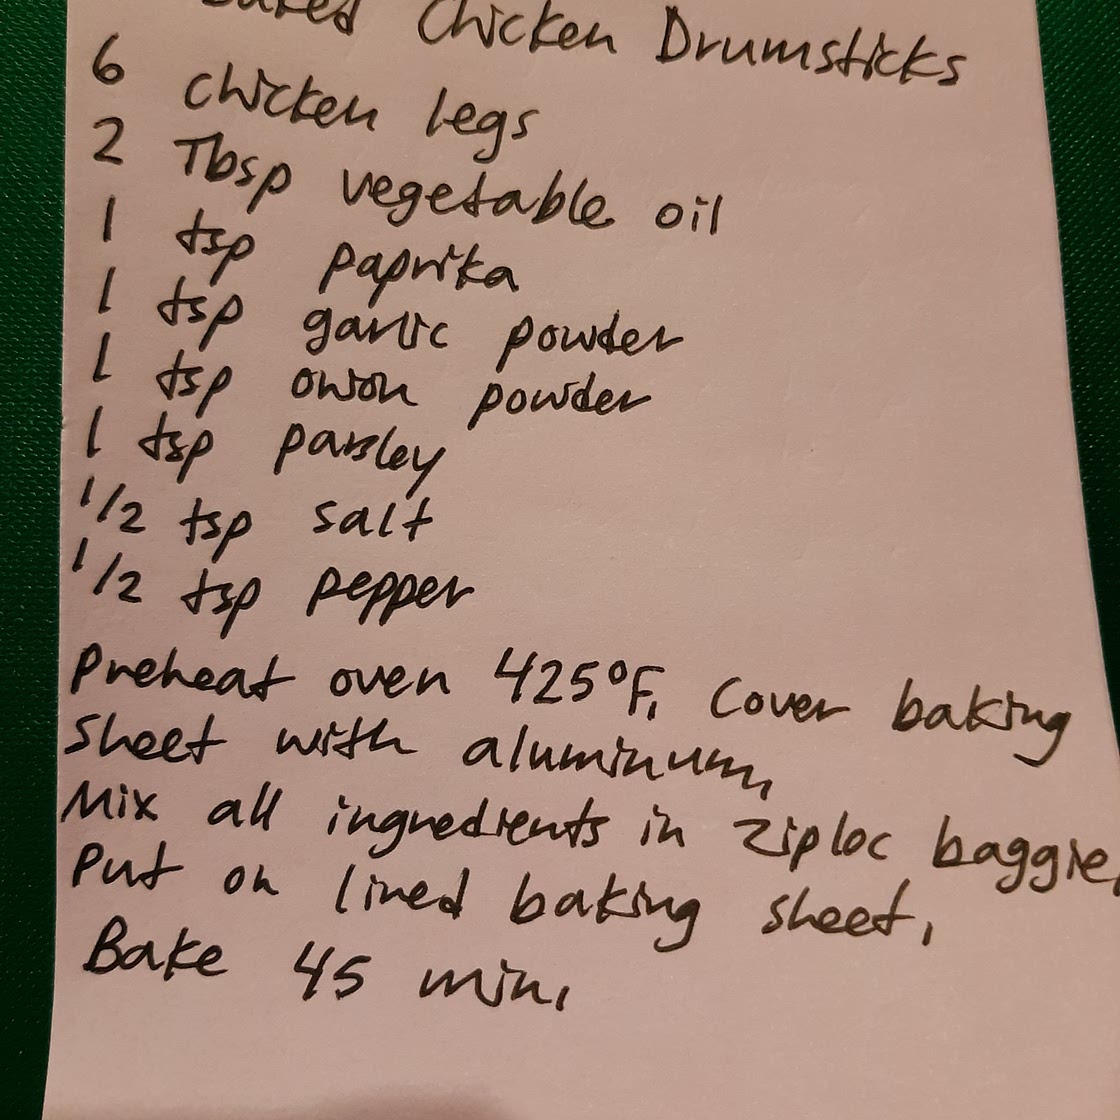 Baked Chicken Drumsticks
6 chicken legs
2 Tbsp vegetable oil
1 tsp paprika
1 tsp garlic powder
1 tsp onion powder
1 tsp parsley
1/2 tsp salt
1/2 tsp pepper
Preheat oven 425°F. Cover baking
sheet with aluminum.
Mix all ingredients in ziploc baggie.
Put on lined baking sheet.
Bake 45 min.